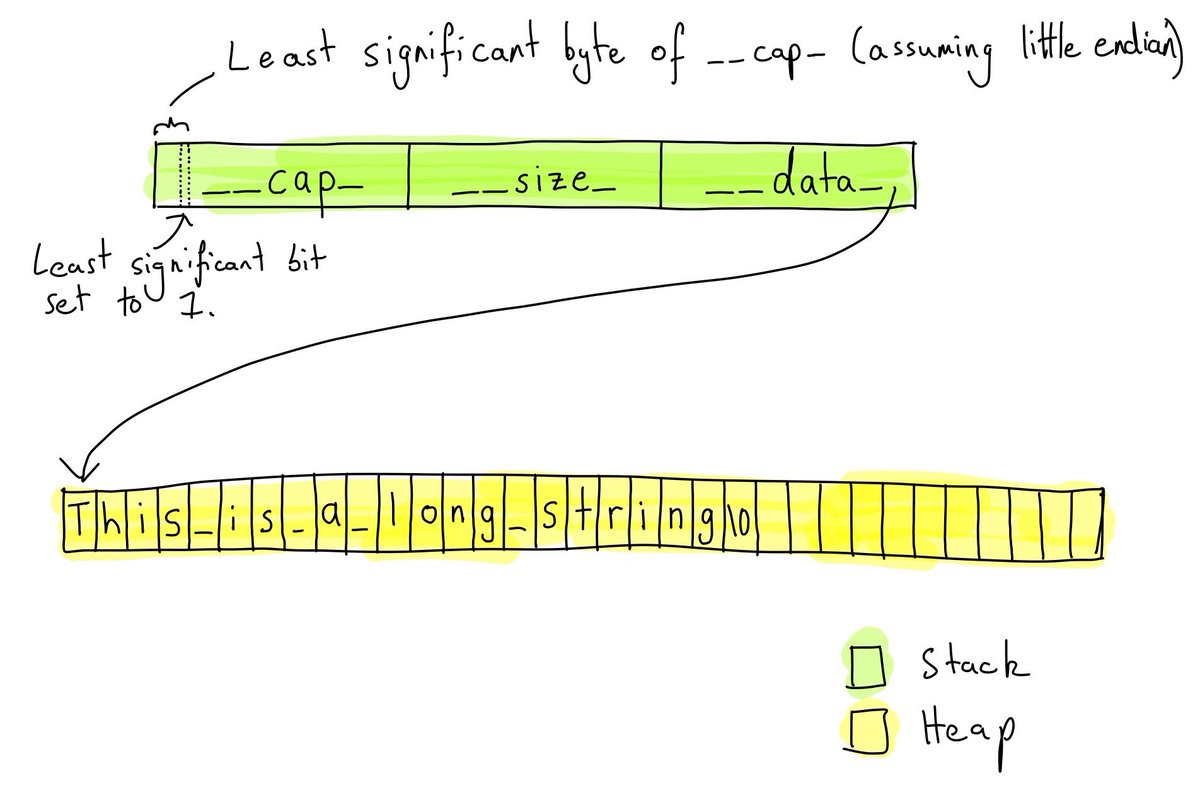 Least significant byte of __cap_ (assuming little endian)
__cap_ __size_ __data_
Least significant bit
set to 1.
This_is_a_long_string\0
Stack
Heap